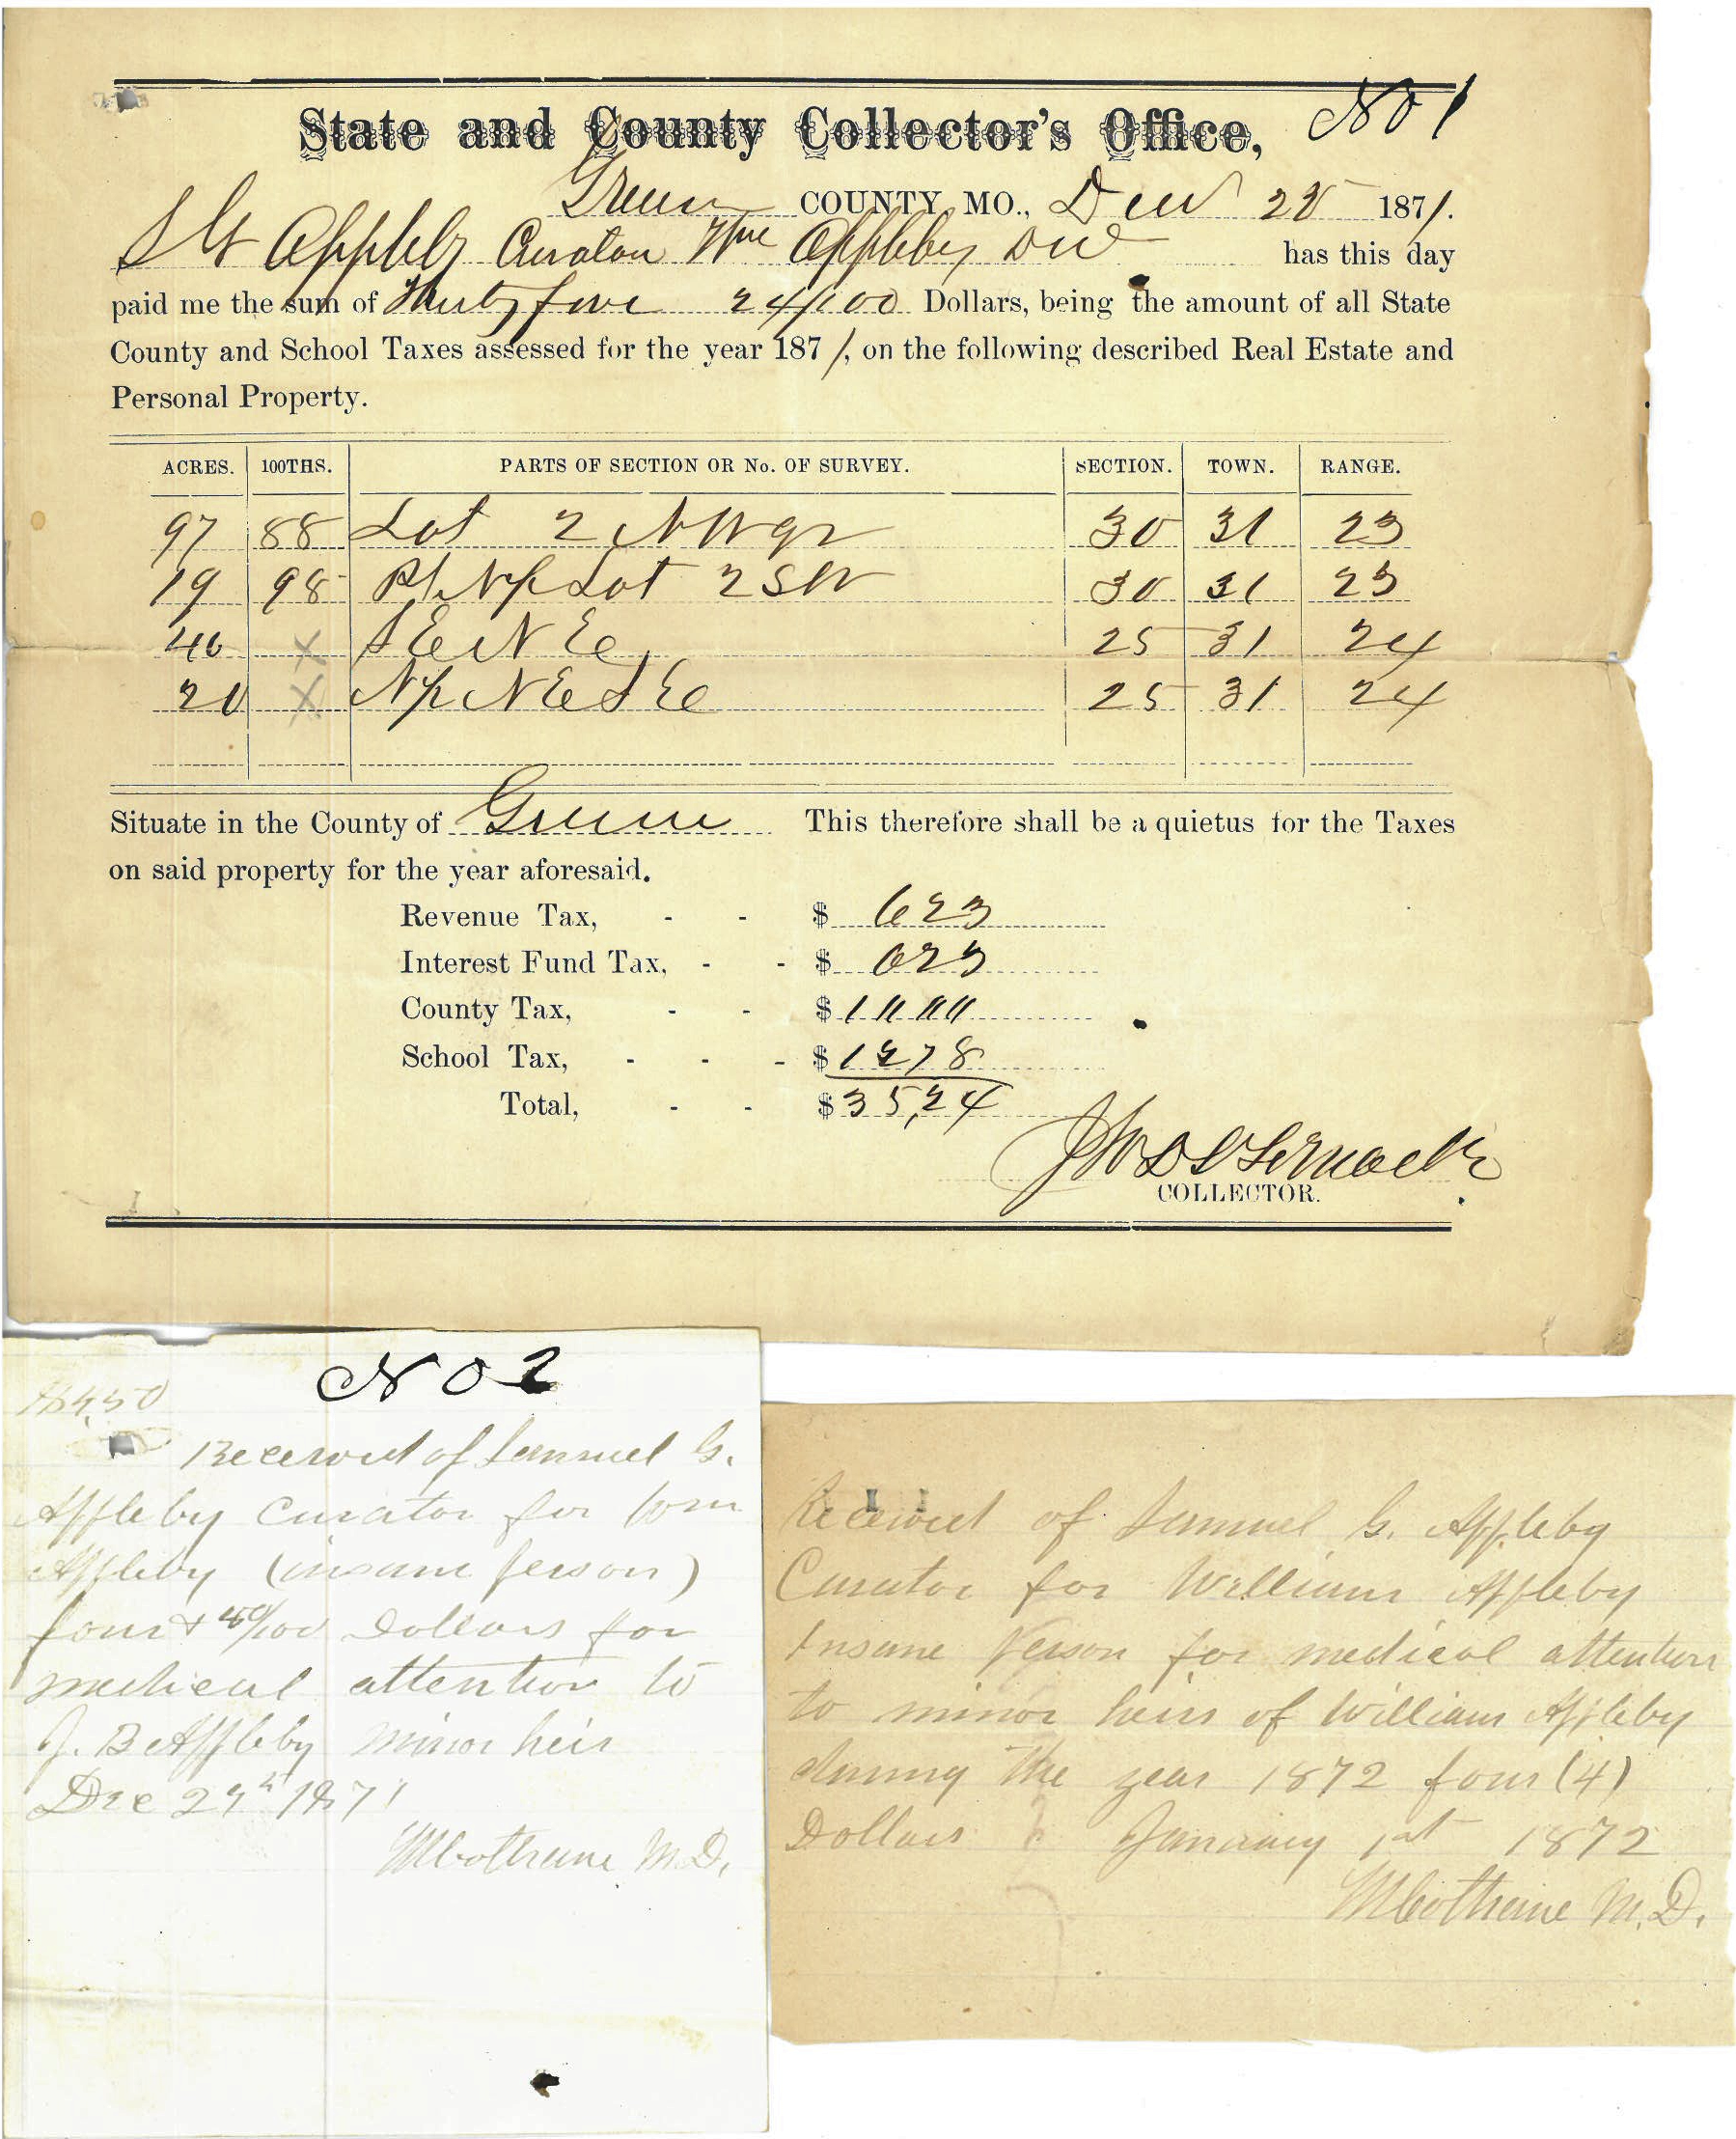 State and County Collector's Office, No 1
Green COUNTY MO., Dec 28 1871.
S G Appleby Curator Wm Appleby has this day
paid me the sum of Thirty five 24/100 Dollars, being the amount of all State
County and School Taxes assessed for the year 1871, on the following described Real Estate and
Personal Property.
ACRES. 100THS. PARTS OF SECTION OR No. OF SURVEY. SECTION. TOWN. RANGE.
97 88 Lot 2 NW qr 30 31 23
19 98 Pt N½ Lot 2 SW 30 31 23
40 X SE NE 25 31 24
20 X N½ NE SE 25 31 24
Situate in the County of Green This therefore shall be a quietus for the Taxes
on said property for the year aforesaid.
Revenue Tax, - - $ 623
Interest Fund Tax, - - $ 623
County Tax, - - $
School Tax, - - - $
Total, - - $ 35,24
COLLECTOR.
No 2
$4,50
Received of Samuel G.
Appleby Curator for Wm
Appleby (insane person)
four & 50/100 Dollars for
medical attention to
J. B Appleby minor heir
Dec 29th 1871
M.D.
Received of Samuel G. Appleby
Curator for William Appleby
Insane Person for medical attention
to minor heirs of William Appleby
during the year 1872 four (4)
Dollars January 1st 1872
M.D.